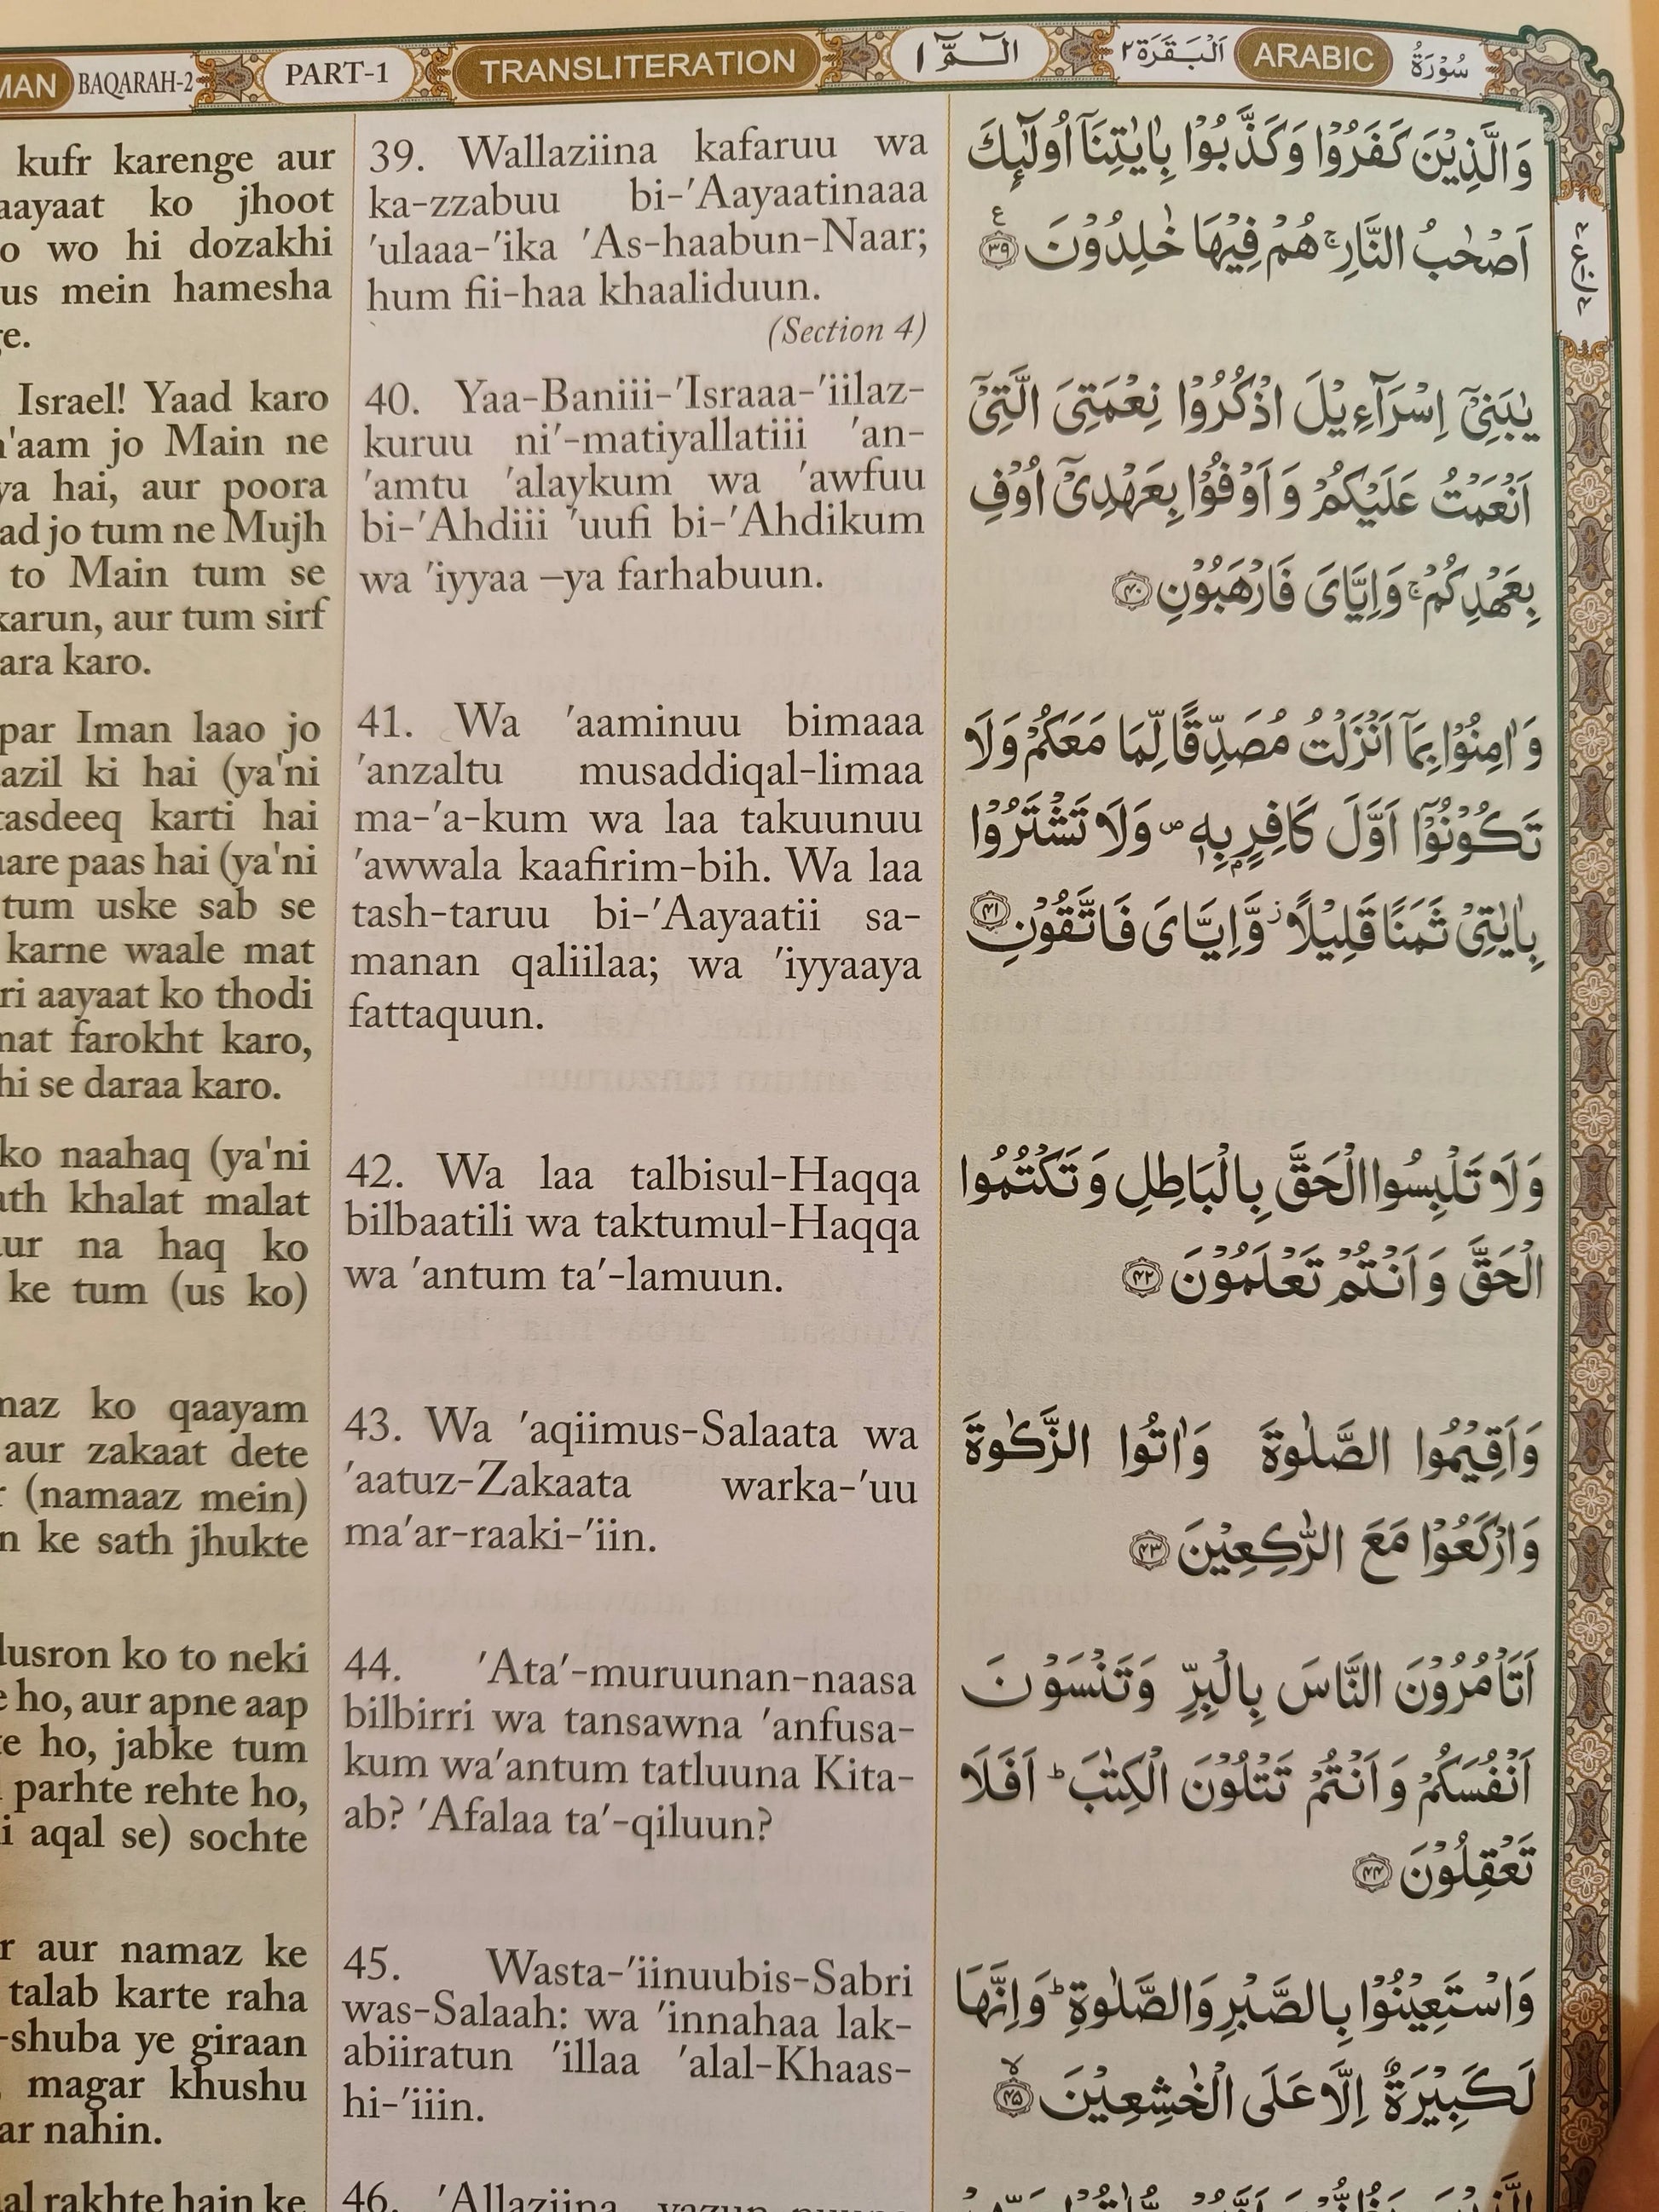 BAQARAH-2 PART-1 TRANSLITERATION الٓـمّٓ ١ اَلْبَقَرَة ٢ ARABIC سُوْرَةُ
kufr karenge aur
aayaat ko jhoot
wo hi dozakhi
us mein hamesha
Israel! Yaad karo
jo Main ne
hai, aur poora
jo tum ne Mujh
to Main tum se
karun, aur tum sirf
karo.
par Iman laao jo
ki hai (ya'ni
tasdeeq karti hai
paas hai (ya'ni
tum uske sab se
karne waale mat
aayaat ko thodi
mat farokht karo,
hi se daraa karo.
ko naahaq (ya'ni
khalat malat
na haq ko
ke tum (us ko)
ko qaayam
aur zakaat dete
(namaaz mein)
ke sath jhukte
ko to neki
ho, aur apne aap
ho, jabke tum
parhte rehte ho,
aqal se) sochte
aur namaz ke
talab karte raha
-shuba ye giraan
magar khushu
nahin.
rakhte hain ke
39. Wallaziina kafaruu wa
ka-zzabuu bi-'Aayaatinaaa
'ulaaa-'ika 'As-haabun-Naar;
hum fii-haa khaaliduun.
(Section 4)
40. Yaa-Baniii-'Israaa-'iilaz-
kuruu ni'-matiyallatiii 'an-
'amtu 'alaykum wa 'awfuu
bi-'Ahdiii 'uufi bi-'Ahdikum
wa 'iyyaa –ya farhabuun.
41. Wa 'aaminuu bimaaa
'anzaltu musaddiqal-limaa
ma-'a-kum wa laa takuunuu
'awwala kaafirim-bih. Wa laa
tash-taruu bi-'Aayaatii sa-
manan qaliilaa; wa 'iyyaaya
fattaquun.
42. Wa laa talbisul-Haqqa
bilbaatili wa taktumul-Haqqa
wa 'antum ta'-lamuun.
43. Wa 'aqiimus-Salaata wa
'aatuz-Zakaata warka-'uu
ma'ar-raaki-'iin.
44. 'Ata'-muruunan-naasa
bilbirri wa tansawna 'anfusa-
kum wa'antum tatluuna Kita-
ab? 'Afalaa ta'-qiluun?
45. Wasta-'iinuubis-Sabri
was-Salaah: wa 'innahaa lak-
abiiratun 'illaa 'alal-Khaas-
hi-'iiin.
46. 'Allaziina
وَالَّذِيْنَ كَفَرُوْا وَكَذَّبُوْا بِاٰيٰتِنَاۤ اُولٰٓئِكَ
اَصْحٰبُ النَّارِ ۚ هُمْ فِيْهَا خٰلِدُوْنَ ﴿۳۹﴾ ع
يٰبَنِيْۤ اِسْرَآءِيْلَ اذْكُرُوْا نِعْمَتِيَ الَّتِيْۤ
اَنْعَمْتُ عَلَيْكُمْ وَاَوْفُوْا بِعَهْدِيْۤ اُوْفِ
بِعَهْدِكُمْ ۚ وَاِيَّايَ فَارْهَبُوْنِ ﴿۴۰﴾
وَاٰمِنُوْا بِمَاۤ اَنْزَلْتُ مُصَدِّقًا لِّمَا مَعَكُمْ وَلَا
تَكُوْنُوْۤا اَوَّلَ كَافِرٍۭ بِهٖ ۪ وَلَا تَشْتَرُوْا
بِاٰيٰتِيْ ثَمَنًا قَلِيْلًا ؗ وَّاِيَّايَ فَاتَّقُوْنِ ﴿۴۱﴾
وَلَا تَلْبِسُوا الْحَقَّ بِالْبَاطِلِ وَتَكْتُمُوا
الْحَقَّ وَاَنْتُمْ تَعْلَمُوْنَ ﴿۴۲﴾
وَاَقِيْمُوا الصَّلٰوةَ وَاٰتُوا الزَّكٰوةَ
وَارْكَعُوْا مَعَ الرّٰكِعِيْنَ ﴿۴۳﴾
اَتَاْمُرُوْنَ النَّاسَ بِالْبِرِّ وَتَنْسَوْنَ
اَنْفُسَكُمْ وَاَنْتُمْ تَتْلُوْنَ الْكِتٰبَ ؕ اَفَلَا
تَعْقِلُوْنَ ﴿۴۴﴾
وَاسْتَعِيْنُوْا بِالصَّبْرِ وَالصَّلٰوةِ ؕ وَاِنَّهَا
لَكَبِيْرَةٌ اِلَّا عَلَى الْخٰشِعِيْنَ ﴿۴۵﴾ۙ